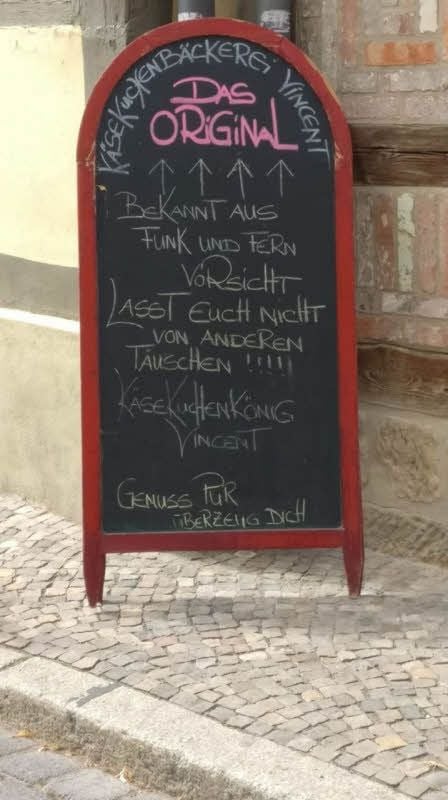 KäseKuchenBäckerei Vincent
Das
Original
↑ ↑ ↑ ↑
Bekannt aus
Funk und Fern
Vorsicht
Lasst euch nicht
von anderen
täuschen !!!!!
KäseKuchenKönig
Vincent
Genuss Pur
überzeug Dich